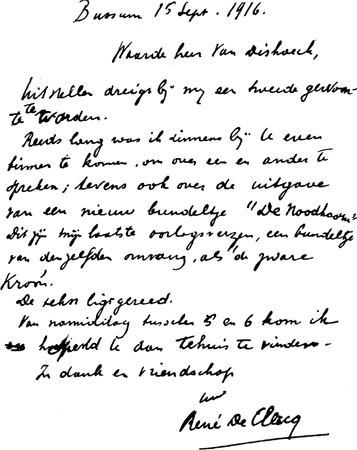 Bussum 15 Sept. 1916.
Waarde heer Van Dishoeck,
Uitstellen dreigt bij mij een tweede gewoon-
te te worden.
Reeds lang was ik zinnens bij U even
binnen te komen, om over een en ander te
spreken; tevens ook over de uitgave
van een nieuw bundeltje "De Noodhoorn"
Dit zijn mijn laatste oorlogsverzen, een bundeltje
van denzelfden omvang, als de zware
Kroon.
De tekst ligt gereed.
Van namiddag tusschen 5 en 6 kom ik
U dan tehuis te vinden.
In dank en vriendschap
uw
René De Clercq